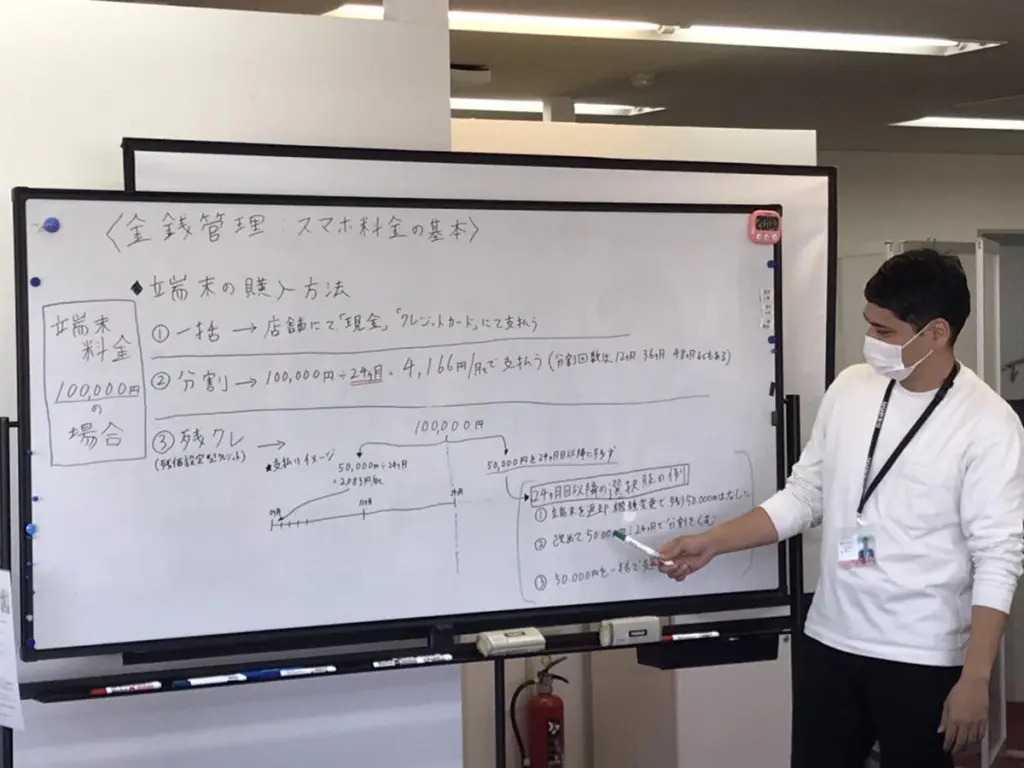 〈金銭管理：スマホ料金の基本〉
◆端末の購入方法
端末
料金
100,000円
の
場合
① 一括 → 店舗にて「現金」「クレジットカード」にて支払う
② 分割 → 100,000円÷24ヶ月 = 4,166円/月で支払う（分割回数は、12ヶ月 36ヶ月 48ヶ月などもある）
③ 残クレ →
(残価設定型クレジット)
100,000円
★支払いイメージ
50,000円÷24ヶ月
=2,083円/月
50,000円を24ヶ月目以降にまわす
0ヶ月
12ヶ月
24ヶ月
24ヶ月目以降の選択肢の例
① 端末を返却 機種変更で 残り50,000円はなしに
② 改めて50,000円÷24ヶ月で分割
③ 50,000円を一括で